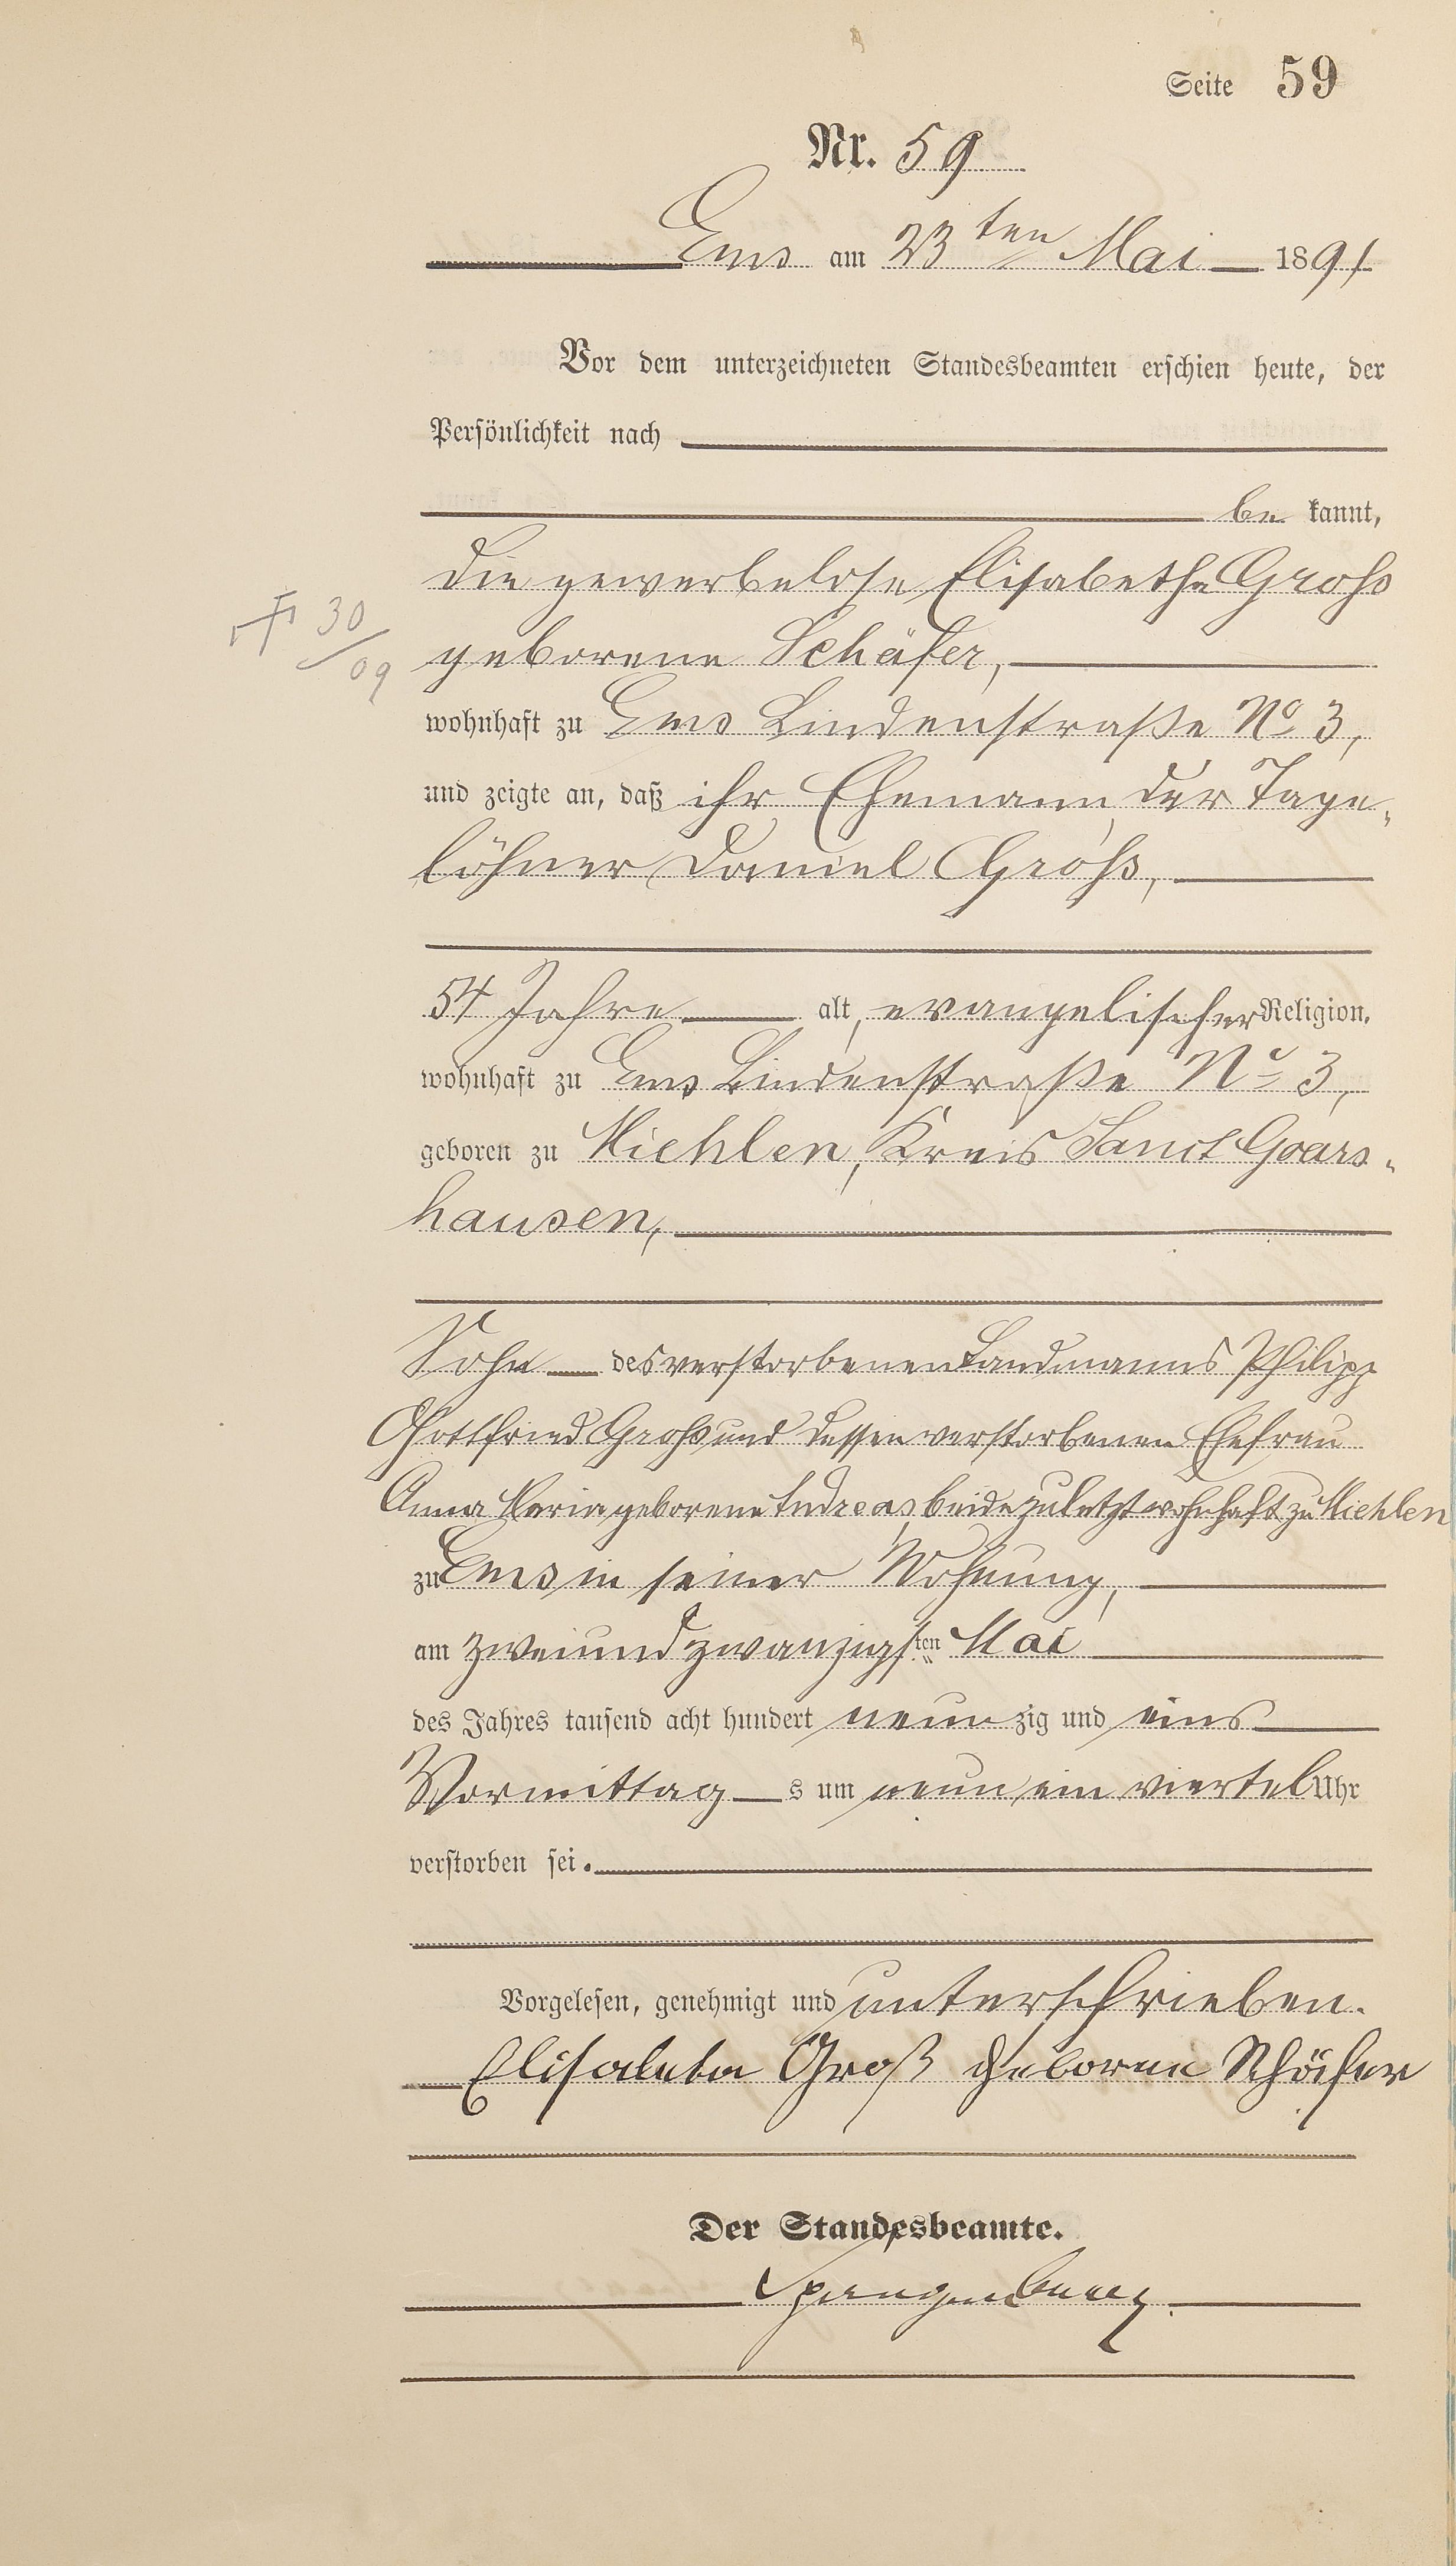 Seite 59
Nr. 59
Ems am 23ten Mai 1891
Vor dem unterzeichneten Standesbeamten erschien heute, der
Persönlichkeit nach
be kannt,
die gewerbelose Elisabethe Groß
† 30/09
geborene Schäfer,
wohnhaft zu Ems Lindenstraße No 3,
und zeigte an, daß ihr Ehemann, der Tage-
löhner Daniel Groß,
54 Jahre alt, evangelischer Religion,
wohnhaft zu Ems Lindenstraße No 3,
geboren zu Miehlen, Kreis Sanct Goars-
hausen,
Sohn des verstorbenen Landmanns Philipp
Gottfried Groß und dessen verstorbenen Ehefrau
Anna Maria geborene Andreas, beide zuletzt wohnhaft zu Miehlen
zu Ems in seiner Wohnung,
am zweiundzwanzigsten Mai
des Jahres tausend acht hundert neunzig und eins
Vormittags um neun ein viertel Uhr
verstorben sei.
Vorgelesen, genehmigt und unterschrieben.
Elisabetha Groß geborene Schäfer
Der Standesbeamte.
Spangenberg